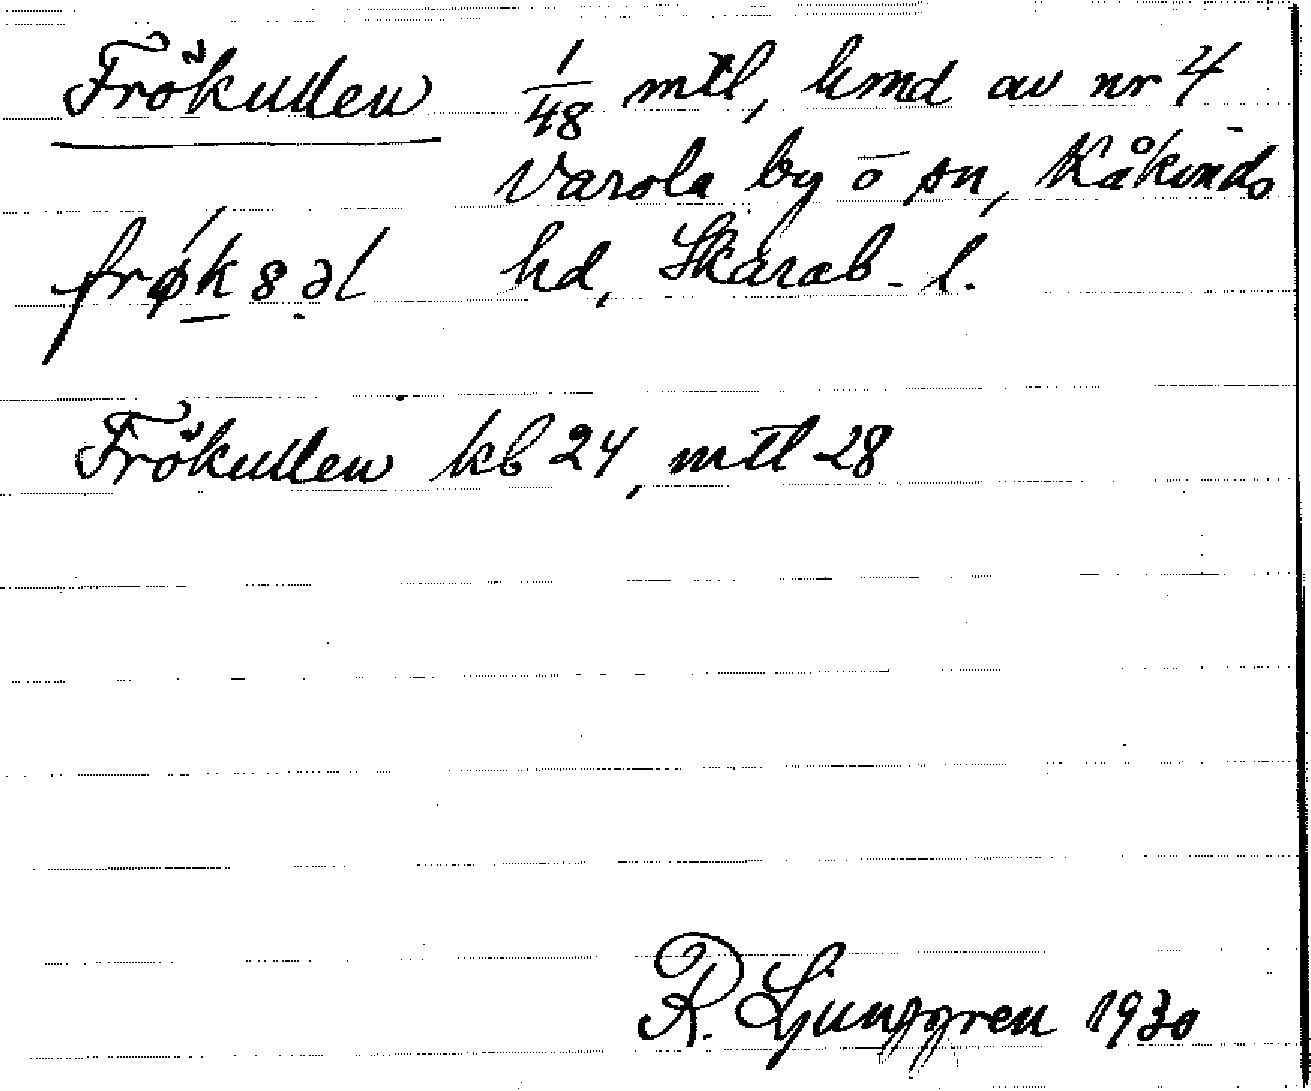 Frökullen 1/48 mtl, hmd av nr 4
Varola by o sn, Kåkinds
frøk8əl hd, Skarab. l.
Frökullen kb 24, mtl 28
R. Ljunggren 1930